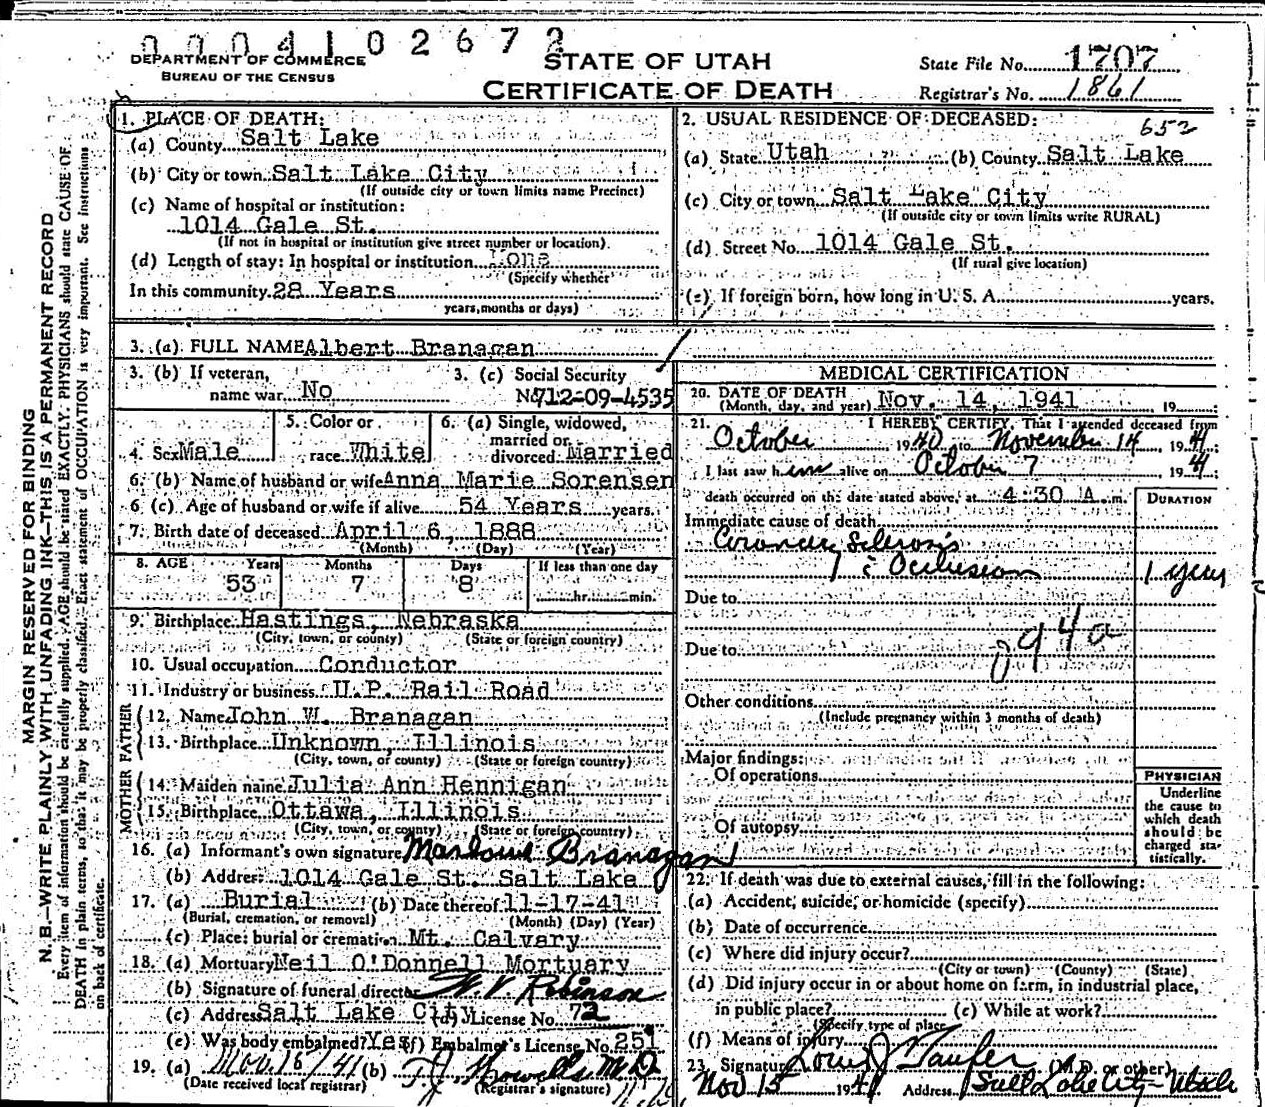 0004102672
DEPARTMENT OF COMMERCE
BUREAU OF THE CENSUS
STATE OF UTAH
CERTIFICATE OF DEATH
State File No. 1707
Registrar's No. 1861
MARGIN RESERVED FOR BINDING
N. B.—WRITE PLAINLY WITH UNFADING INK—THIS IS A PERMANENT RECORD
Every item of information should be carefully supplied. AGE should be stated EXACTLY. PHYSICIANS should state CAUSE OF
DEATH in plain terms, so that it may be properly classified. Exact statement of OCCUPATION is very important. See instructions
on back of certificate.
1. PLACE OF DEATH:
(a) County Salt Lake
(b) City or town Salt Lake City
(If outside city or town limits name Precinct)
(c) Name of hospital or institution:
1014 Gale St.
(If not in hospital or institution give street number or location)
(d) Length of stay: In hospital or institution None
(Specify whether
In this community 28 Years
years, months or days)
2. USUAL RESIDENCE OF DECEASED:
652
(a) State Utah (b) County Salt Lake
(c) City or town Salt Lake City
(If outside city or town limits write RURAL)
(d) Street No. 1014 Gale St.
(If rural give location)
(e) If foreign born, how long in U. S. A. years.
3. (a) FULL NAME Albert Branagan
3. (b) If veteran,
name war No
3. (c) Social Security
No 712-09-4535
4. Sex Male
5. Color or
race White
6. (a) Single, widowed,
married or
divorced Married
6. (b) Name of husband or wife Anna Marie Sorensen
6 (c) Age of husband or wife if alive 54 Years years.
7. Birth date of deceased April 6, 1888
(Month) (Day) (Year)
8. AGE Years Months Days If less than one day
53 7 8 hr. min.
9. Birthplace Hastings, Nebraska
(City, town, or county) (State or foreign country)
10. Usual occupation Conductor
11. Industry or business U.P. Rail Road
FATHER
12. Name John W. Branagan
13. Birthplace Unknown, Illinois
(City, town, or county) (State or foreign country)
MOTHER
14. Maiden name Julia Ann Hennigan
15. Birthplace Ottawa, Illinois
(City, town, or county) (State or foreign country)
16. (a) Informant's own signature Marlowe Branagan
(b) Address 1014 Gale St. Salt Lake
17. (a) Burial (b) Date thereof 11-17-41
(Burial, cremation, or removal) (Month) (Day) (Year)
(c) Place: burial or cremation Mt. Calvary
18. (a) Mortuary Neil O'Donnell Mortuary
(b) Signature of funeral director W. V. Robinson
(c) Address Salt Lake City (d) License No. 72
(e) Was body embalmed? Yes (f) Embalmer's License No. 251
19. (a) Nov. 18/41 (b) M.D.
(Date received local registrar) (Registrar's signature)
MEDICAL CERTIFICATION
20. DATE OF DEATH
(Month, day, and year) Nov. 14, 1941 , 19
21. I HEREBY CERTIFY, That I attended deceased from
October 1940 to November 14 1941
I last saw him alive on October 7 1941
death occurred on the date stated above, at 4:30 A.m.
DURATION
Immediate cause of death
Coronary Sclerosis
c̄ Occlusion 1 year
Due to
94a
Due to
Other conditions
(Include pregnancy within 3 months of death)
Major findings:
Of operations
Of autopsy
PHYSICIAN
Underline
the cause to
which death
should be
charged sta-
tistically.
22. If death was due to external causes, fill in the following:
(a) Accident, suicide, or homicide (specify)
(b) Date of occurrence
(c) Where did injury occur?
(City or town) (County) (State)
(d) Did injury occur in or about home on farm, in industrial place,
in public place? (e) While at work?
(Specify type of place
(f) Means of injury
23. Signature Louis J Taufer (M.D. or other)
Nov 15 1941 Address Salt Lake City - Utah